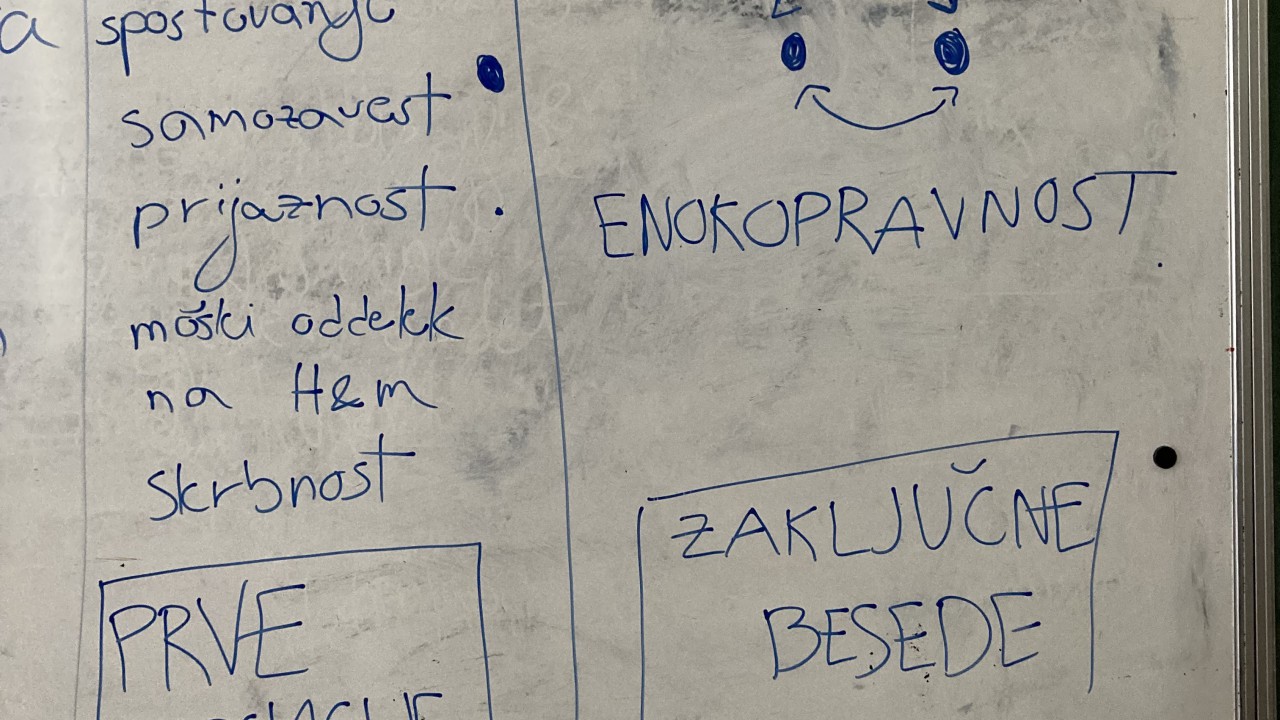 a spoštovanje
samozavest
prijaznost
moški oddelk
na H&m
skrbnost
PRVE
ENOKOPRAVNOST
ZAKLJUČNE
BESEDE